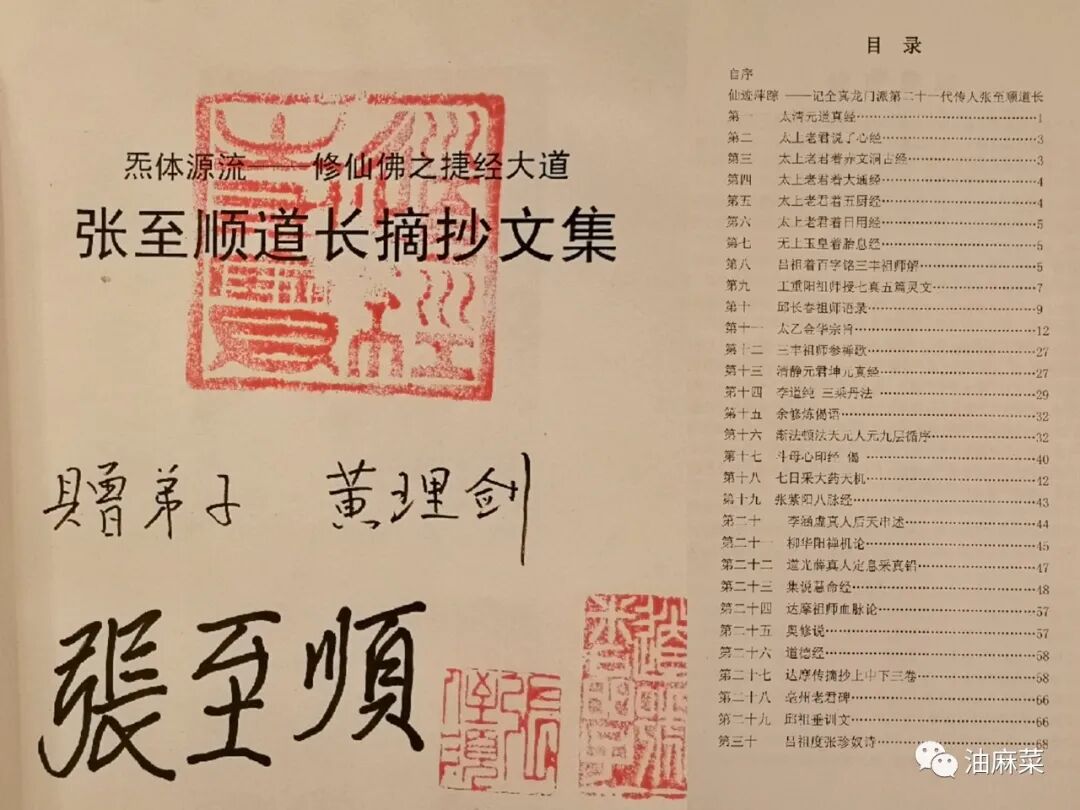 炁体源流——修仙佛之捷经大道
张至顺道长摘抄文集
贈弟子 黄理剑
張至順
目 录
自序
仙迹萍踪 ——记全真龙门派第二十一代传人张至顺道长
第一 太清元道真经……1
第二 太上老君说了心经……3
第三 太上老君着赤文洞古经……3
第四 太上老君着大通经……4
第五 太上老君着五厨经……4
第六 太上老君着日用经……5
第七 无上玉皇着胎息经……5
第八 吕祖着百字铭三丰祖师解……5
第九 王重阳祖师授七真五篇灵文……7
第十 邱长春祖师语录……9
第十一 太乙金华宗旨……12
第十二 三丰祖师参禅歌……27
第十三 清静元君坤元真经……27
第十四 李道纯 三乘丹法……29
第十五 余修炼偈语……32
第十六 渐法顿法天元人元九层循序……32
第十七 斗母心印经 偈……40
第十八 七日采大药天机……42
第十九 张紫阳八脉经……43
第二十 李涵虚真人后天串述……44
第二十一 柳华阳禅机论……45
第二十二 道光薛真人定息采真铅……47
第二十三 集说慧命经……48
第二十四 达摩祖师血脉论……57
第二十五 奥修说……57
第二十六 道德经……58
第二十七 达摩传摘抄上中下三卷……58
第二十八 亳州老君碑……66
第二十九 邱祖垂训文……66
第三十 吕祖度张珍奴诗……68
油麻菜